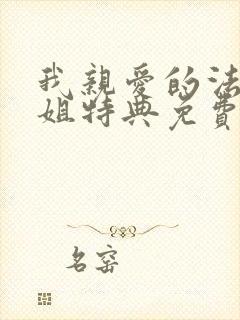 我親愛的法
姐特典免費
名窑